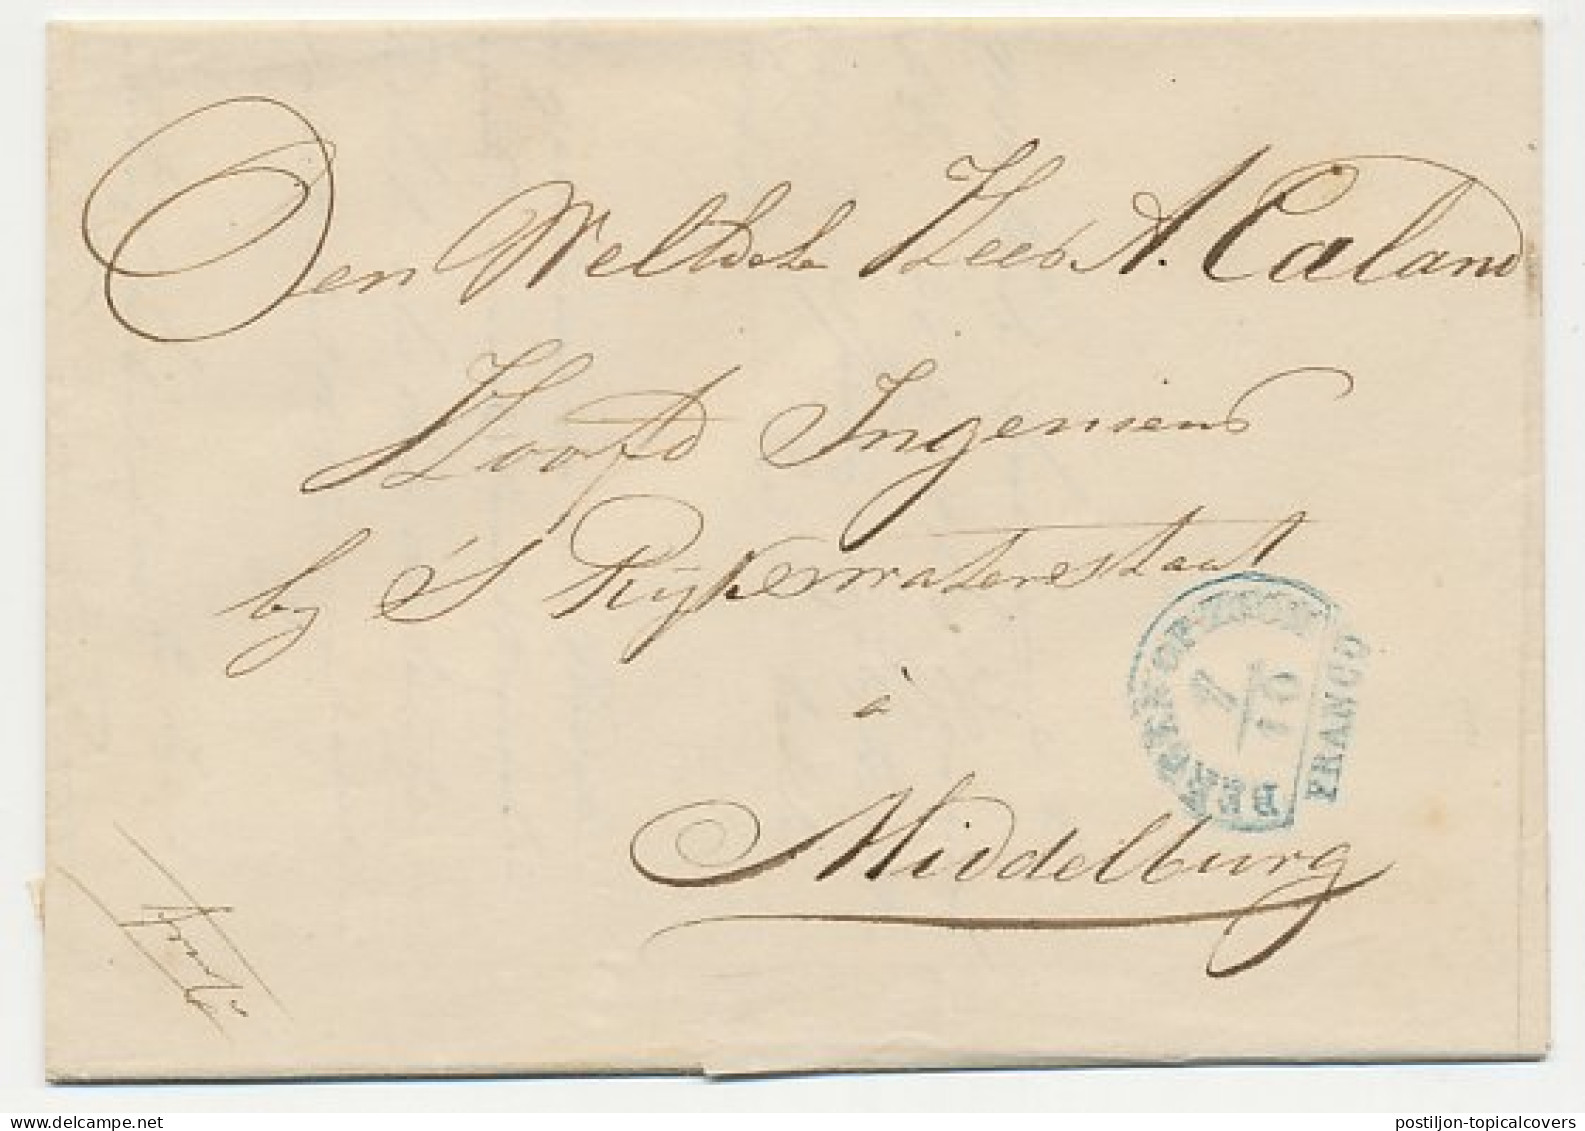 Den WelEdele Heer A. Caland
Hoofd Ingenieur
by 'S Rijkswaterstaat
à
Middelburg
Franco
BERGEN OP ZOOM
7/10
FRANCO
delcampe.net
postiljon-topicalcovers